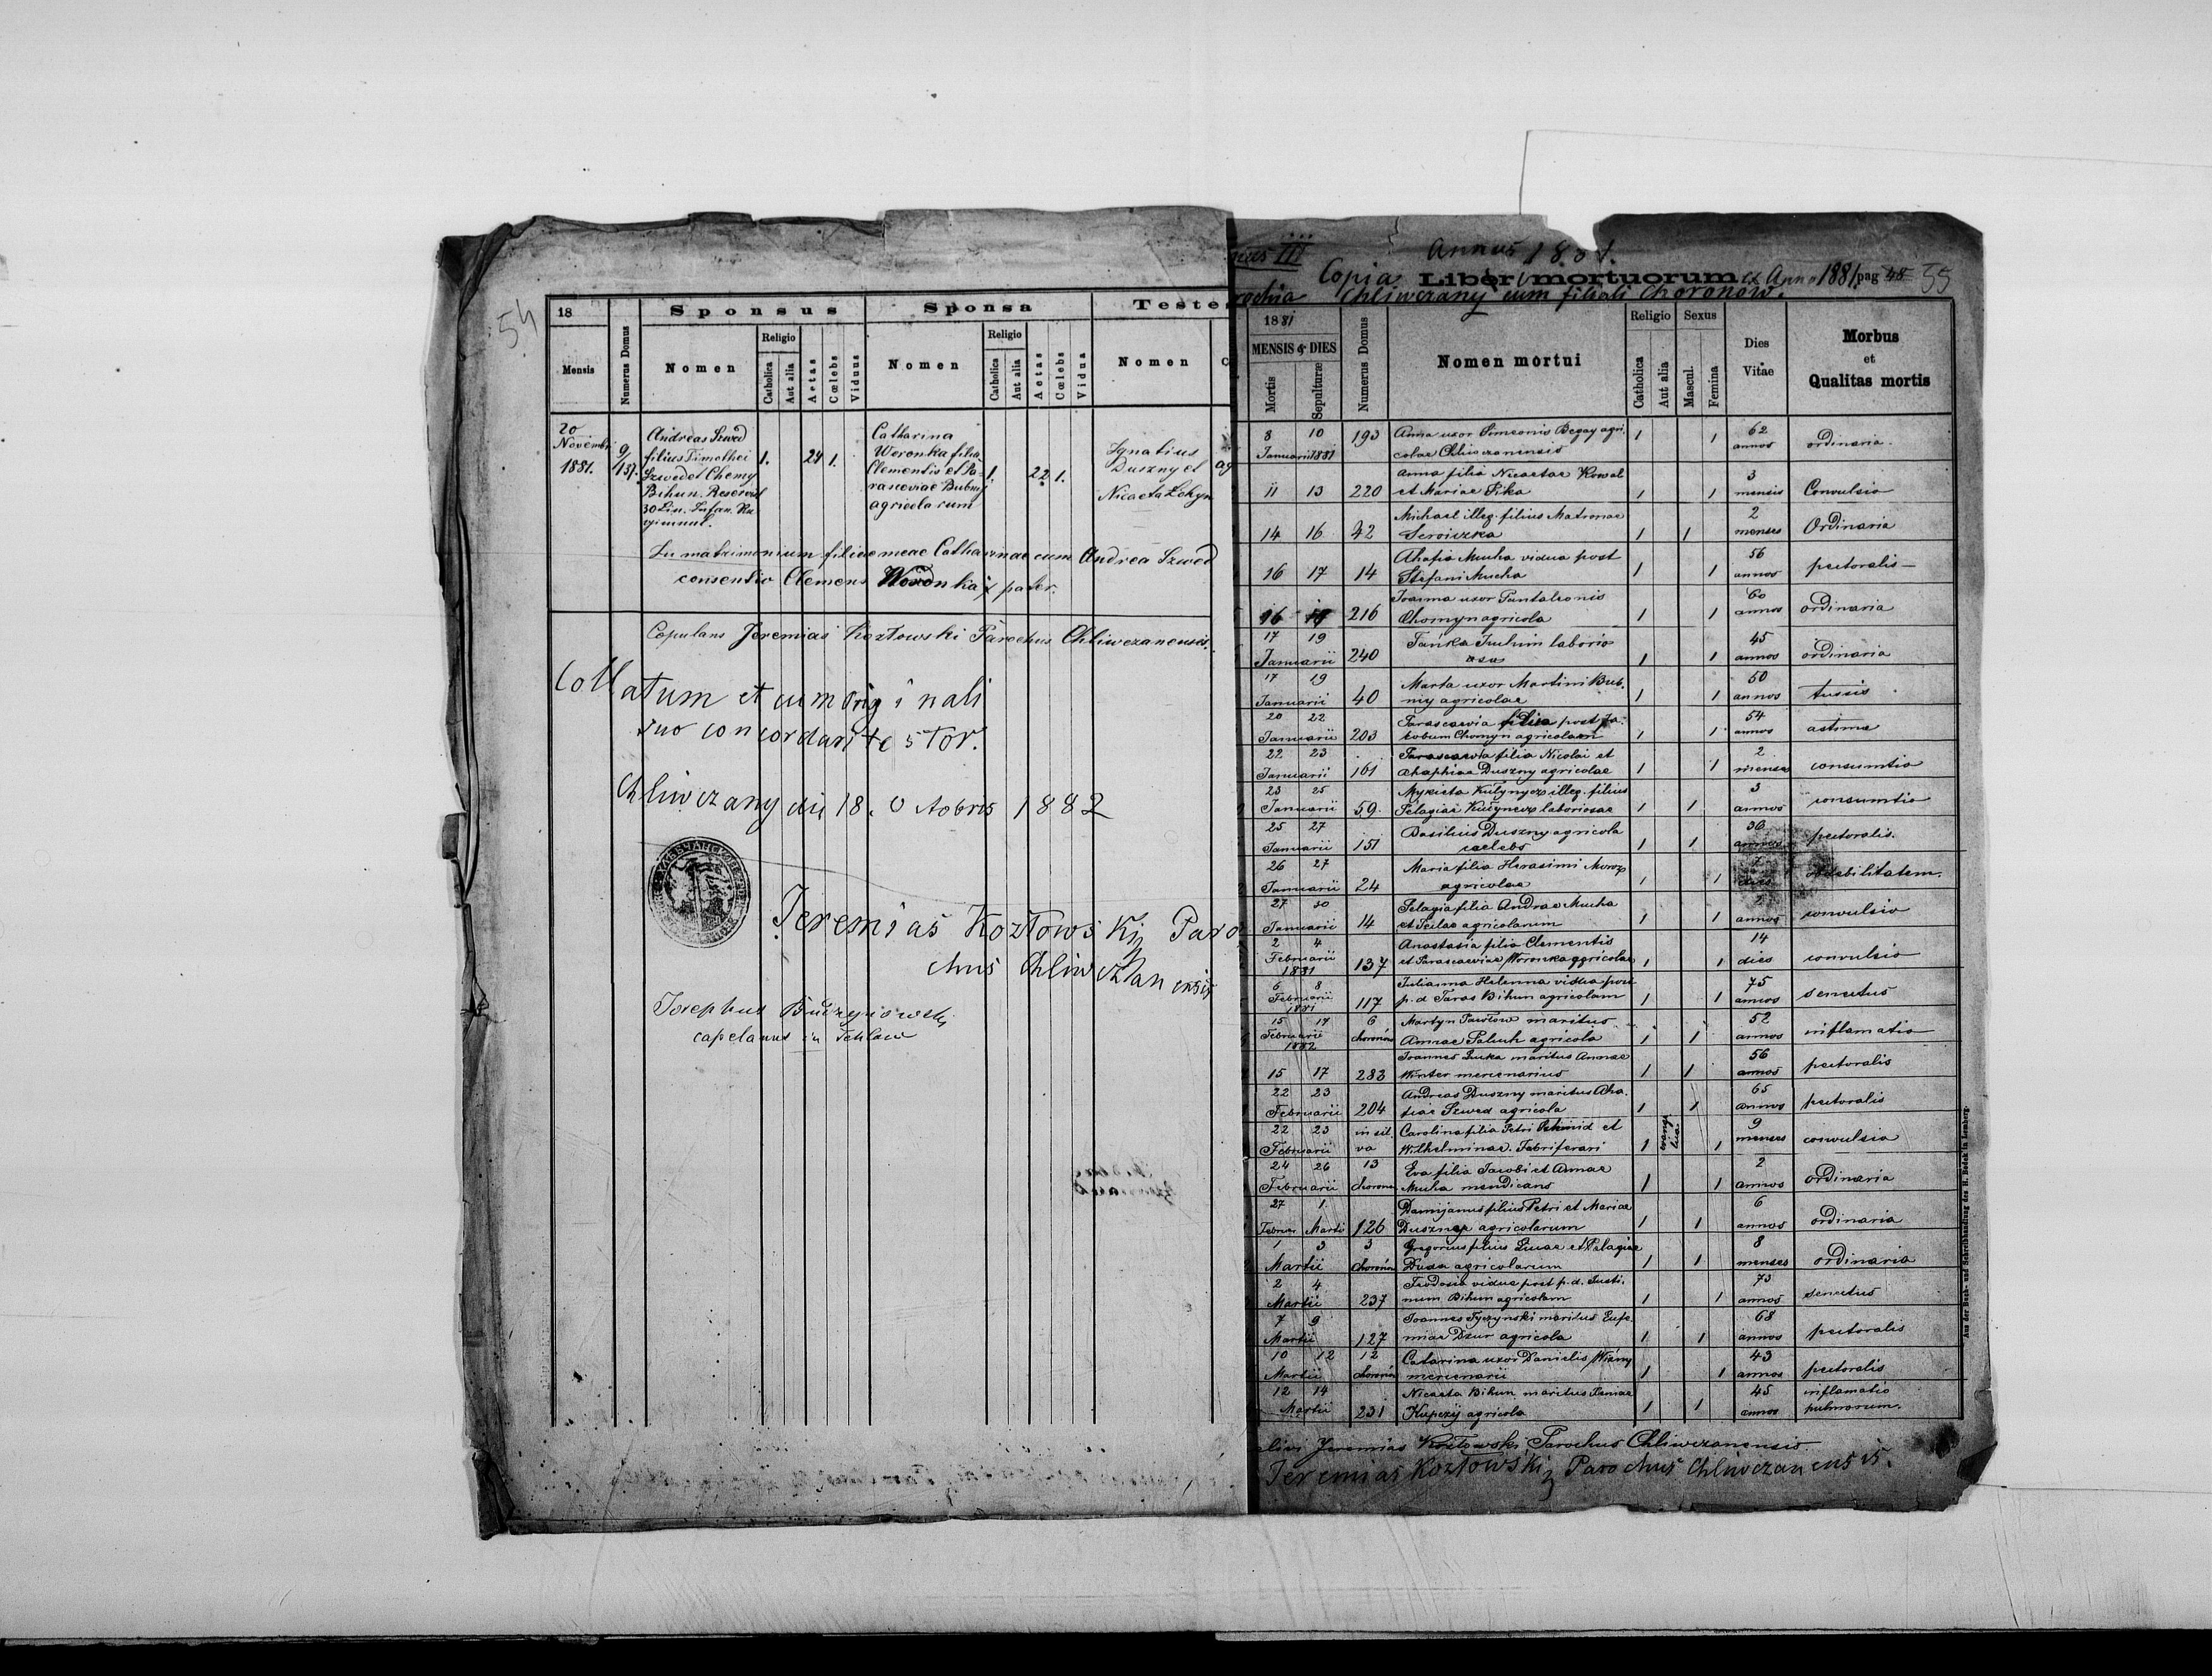 54
18
Mensis
Numerus Domus
Sponsus
Nomen
Religio
Catholica
Aut alia
Aetas
Cœlebs
Viduus
Sponsa
Nomen
Religio
Catholica
Aut alia
Aetas
Cœlebs
Vidua
Testes
Nomen
20
Novembr
1881.
9/137.
Andreas Szwed
filius Timothei
Szwed et Chemy
Bihun. Reservist
30 Lin. Infan. Re
giment.
1.
24
1.
Catharina
Woronka filia
Clementis et Pa-
rasceviae Bubnij
agricolarum
1.
22
1.
Ignatius
Duszny et
Nicaeta
ag
In matrimonium filiae meae Catharinae cum Andrea Szwed
consentio Clemens Woronka x pater.
Copulans Jeremias Kozłowski Parochus Chliwczanensis.
Collatum et cum originali
suo concordari testor.
Chliwczany die 18. Octobris 1882
Jeremias Kozłowski Paro
chus Chliwczanensis
Josephus
capelanus in
III
Annus 1881.
Copia Liber mortuorum ex Anno 1881 pag 48 55
rochia Chliwczany cum filiali Choronow.
1881
MENSIS & DIES
Mortis
Sepulturæ
Numerus Domus
Nomen mortui
Religio
Catholica
Aut alia
Sexus
Mascul.
Femina
Dies
Vitae
Morbus
et
Qualitas mortis
8 10 193 Anna uxor Simeonis Begay agri- 1 1 62
Januarii 1881 colae Chliwczanensis annos ordinaria.
Anna filia Nicaetae Kowal 3
11 13 220 et Mariae Pika 1 1 mensis Convulsio
Michael illeg. filius Matronae 2
14 16 42 1 1 menses Ordinaria
Ahafia Mucha vidua post 56
16 17 14 Stefani Mucha 1 1 annos pectoralis
Joanna uxor Pantaleonis 60
216 Chomyn agricola 1 1 annos ordinaria
17 19 Tańka laborio 45
Januarii 240 asa 1 1 annos ordinaria
17 19 Marta uxor Martini Bub- 50
Januarii 40 nij agricolae 1 1 annos tussis
20 22 Parascevia post Ja- 54
Januarii 203 cobum Chomyn agricolam 1 1 annos astma
22 23 Parascevia filia Nicolai et 2
Januarii 161 Ahaphiae Duszny agricolae 1 1 menses consumtio
23 25 Mykieta illeg. filius 3
Januarii 59. Pelagiae laboriosae 1 1 annos consumtio
25 27 Basilius Duszny agricola 36
Januarii 151 caelebs 1 1 annos pectoralis.
26 27 Maria filia Herasimi Moroz
Januarii 24 agricolae 1 1 dies ob debilitatem.
27 30 Pelagia filia Andreae Mucha 2
Januarii 14 et agricolarum 1 1 annos convulsio
2 4 Anastasia filia Clementis 14
Februarii 1881 137 et Parasceviae Woronka agricolae 1 1 dies convulsio
6 8 Julianna Helenna vidua post 75
Februarii 1881 117 p. d Taras Bihun agricolam 1 1 annos senectus
15 17 6 Martyn Pawłow maritus 52
Februarii 1882 Choronow Annae Paluh agricola 1 1 annos inflamatio
Joannes maritus Annae 56
15 17 283 Winter mercenarius 1 1 annos pectoralis
22 23 Andreas Duszny maritus Aha- 65
Februarii 204 fiae Szwed agricola 1 1 annos pectoralis
22 23 in sil. Carolina filia Petri et 9
Februarii va Wilhelminae. Fabri ferari 1 evangelica 1 menses convulsio
24 26 13 Eva filia Jacobi et Annae 2
Februarii Choronow Mucha mendicans 1 1 annos ordinaria
27 1. Damijanus filius Petri et Mariae 6
Februar Martii 126 Duszny agricolarum 1 1 annos ordinaria
1 3 3 Gregorius filius Lucae et Pelagiae 8
Martii Choronow Duda agricolarum 1 1 menses ordinaria
2 4 Teodosia vidua post p. d. Justi- 73
Martii 237 num Bihun agricolam 1 1 annos senectus
7 9 Joannes Tyczynski maritus Eufe- 68
Martii 127 miae Dzur agricola 1 1 annos pectoralis
10 12 12 Catarina uxor Danielis Wizny 43
Martii Choronow mercenarii 1 1 annos pectoralis
12 14 Nicaeta Bihun maritus 45 inflamatio
Martii 231 Kupczij agricola 1 1 annos pulmonum.
Jeremias Kozłowski Parochus Chliwczanensis
Jeremias Kozłowski Parochus Chliwczanensis.
Aus der Buch- und Schreibhandlung des H. Bodek in Lemberg.